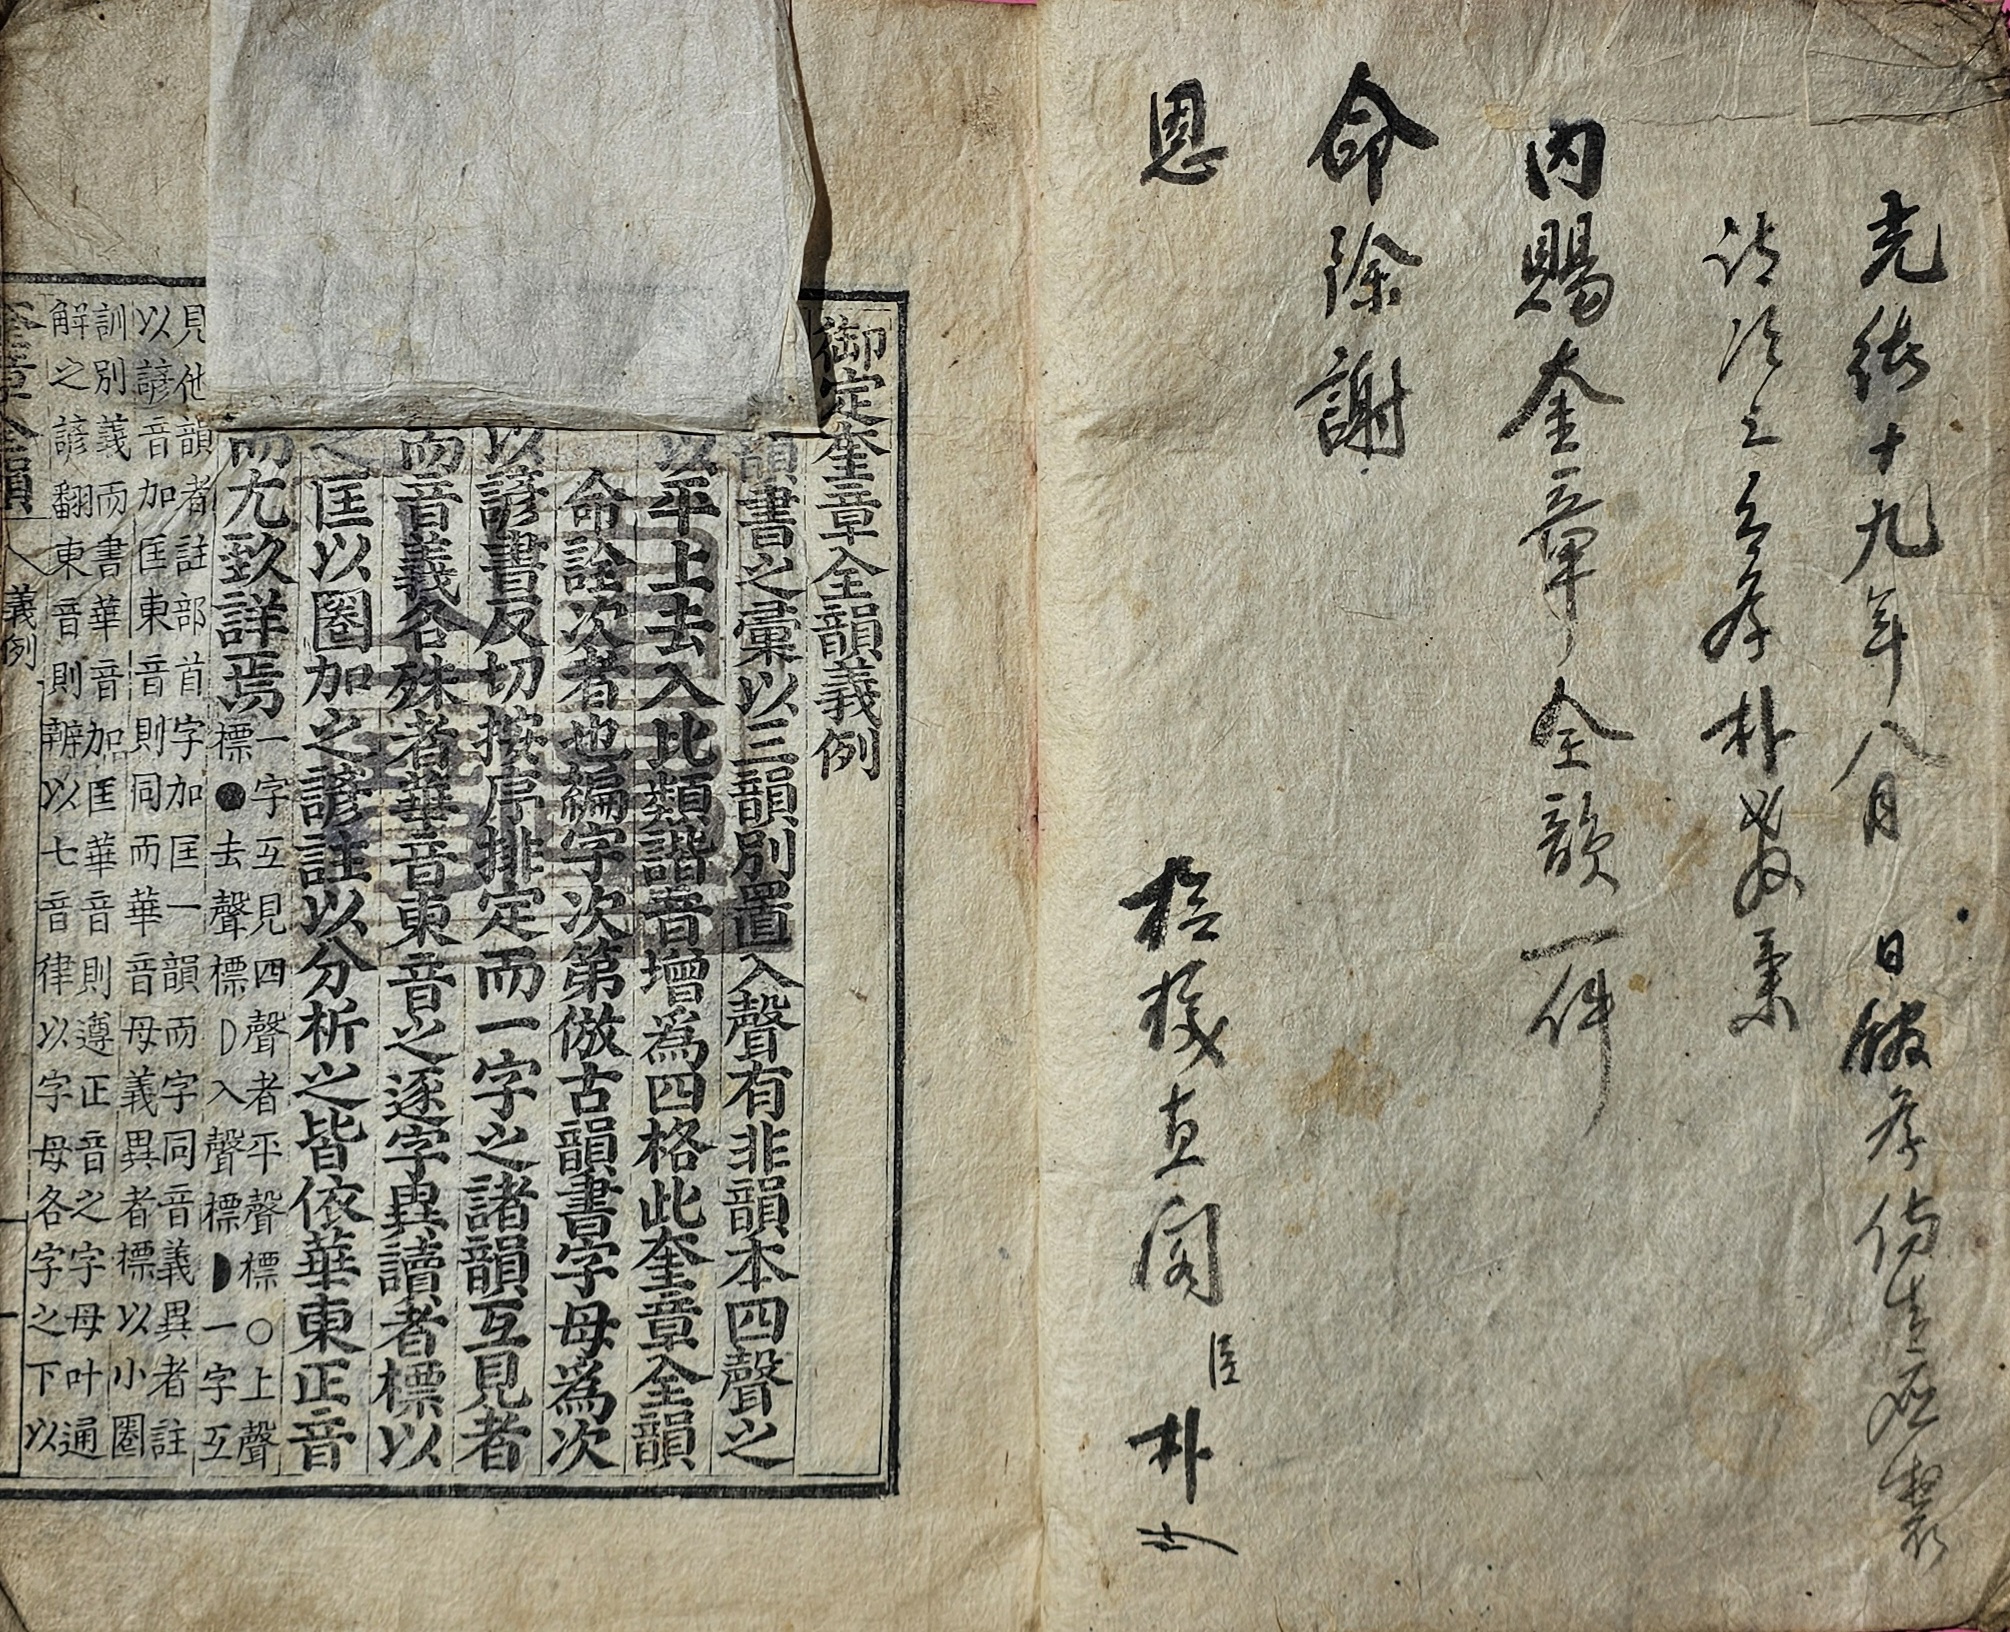 光緖十九年八月 日
內賜奎章全韻一件
命除謝
恩
檢校直閣 臣 朴
御定奎章全韻義例
韻書之彙以三韻別置入聲有非韻本四聲之
以平上去入比類諧音增爲四格此奎章全韻
命詮次者也編字次第倣古韻書字母爲次
以諺書反切按序排定而一字之諸韻互見者
而音義各殊者華音東音之逐字異讀者標以
匡以圈加之諺註以分析之皆依華東正音
而尤致詳焉
一字互見四聲者平聲標○上聲
標●去聲標D入聲標◗一字互
見他韻者註部首字加匡一韻而字同音義異者註
以諺音加匡東音則同而華音母義異者標以小圈
訓別義而書華音加匡華音則遵正音之字母叶通
解之諺翻東音則辨以七音律以字母各字之下以
奎章全韻 義例 一